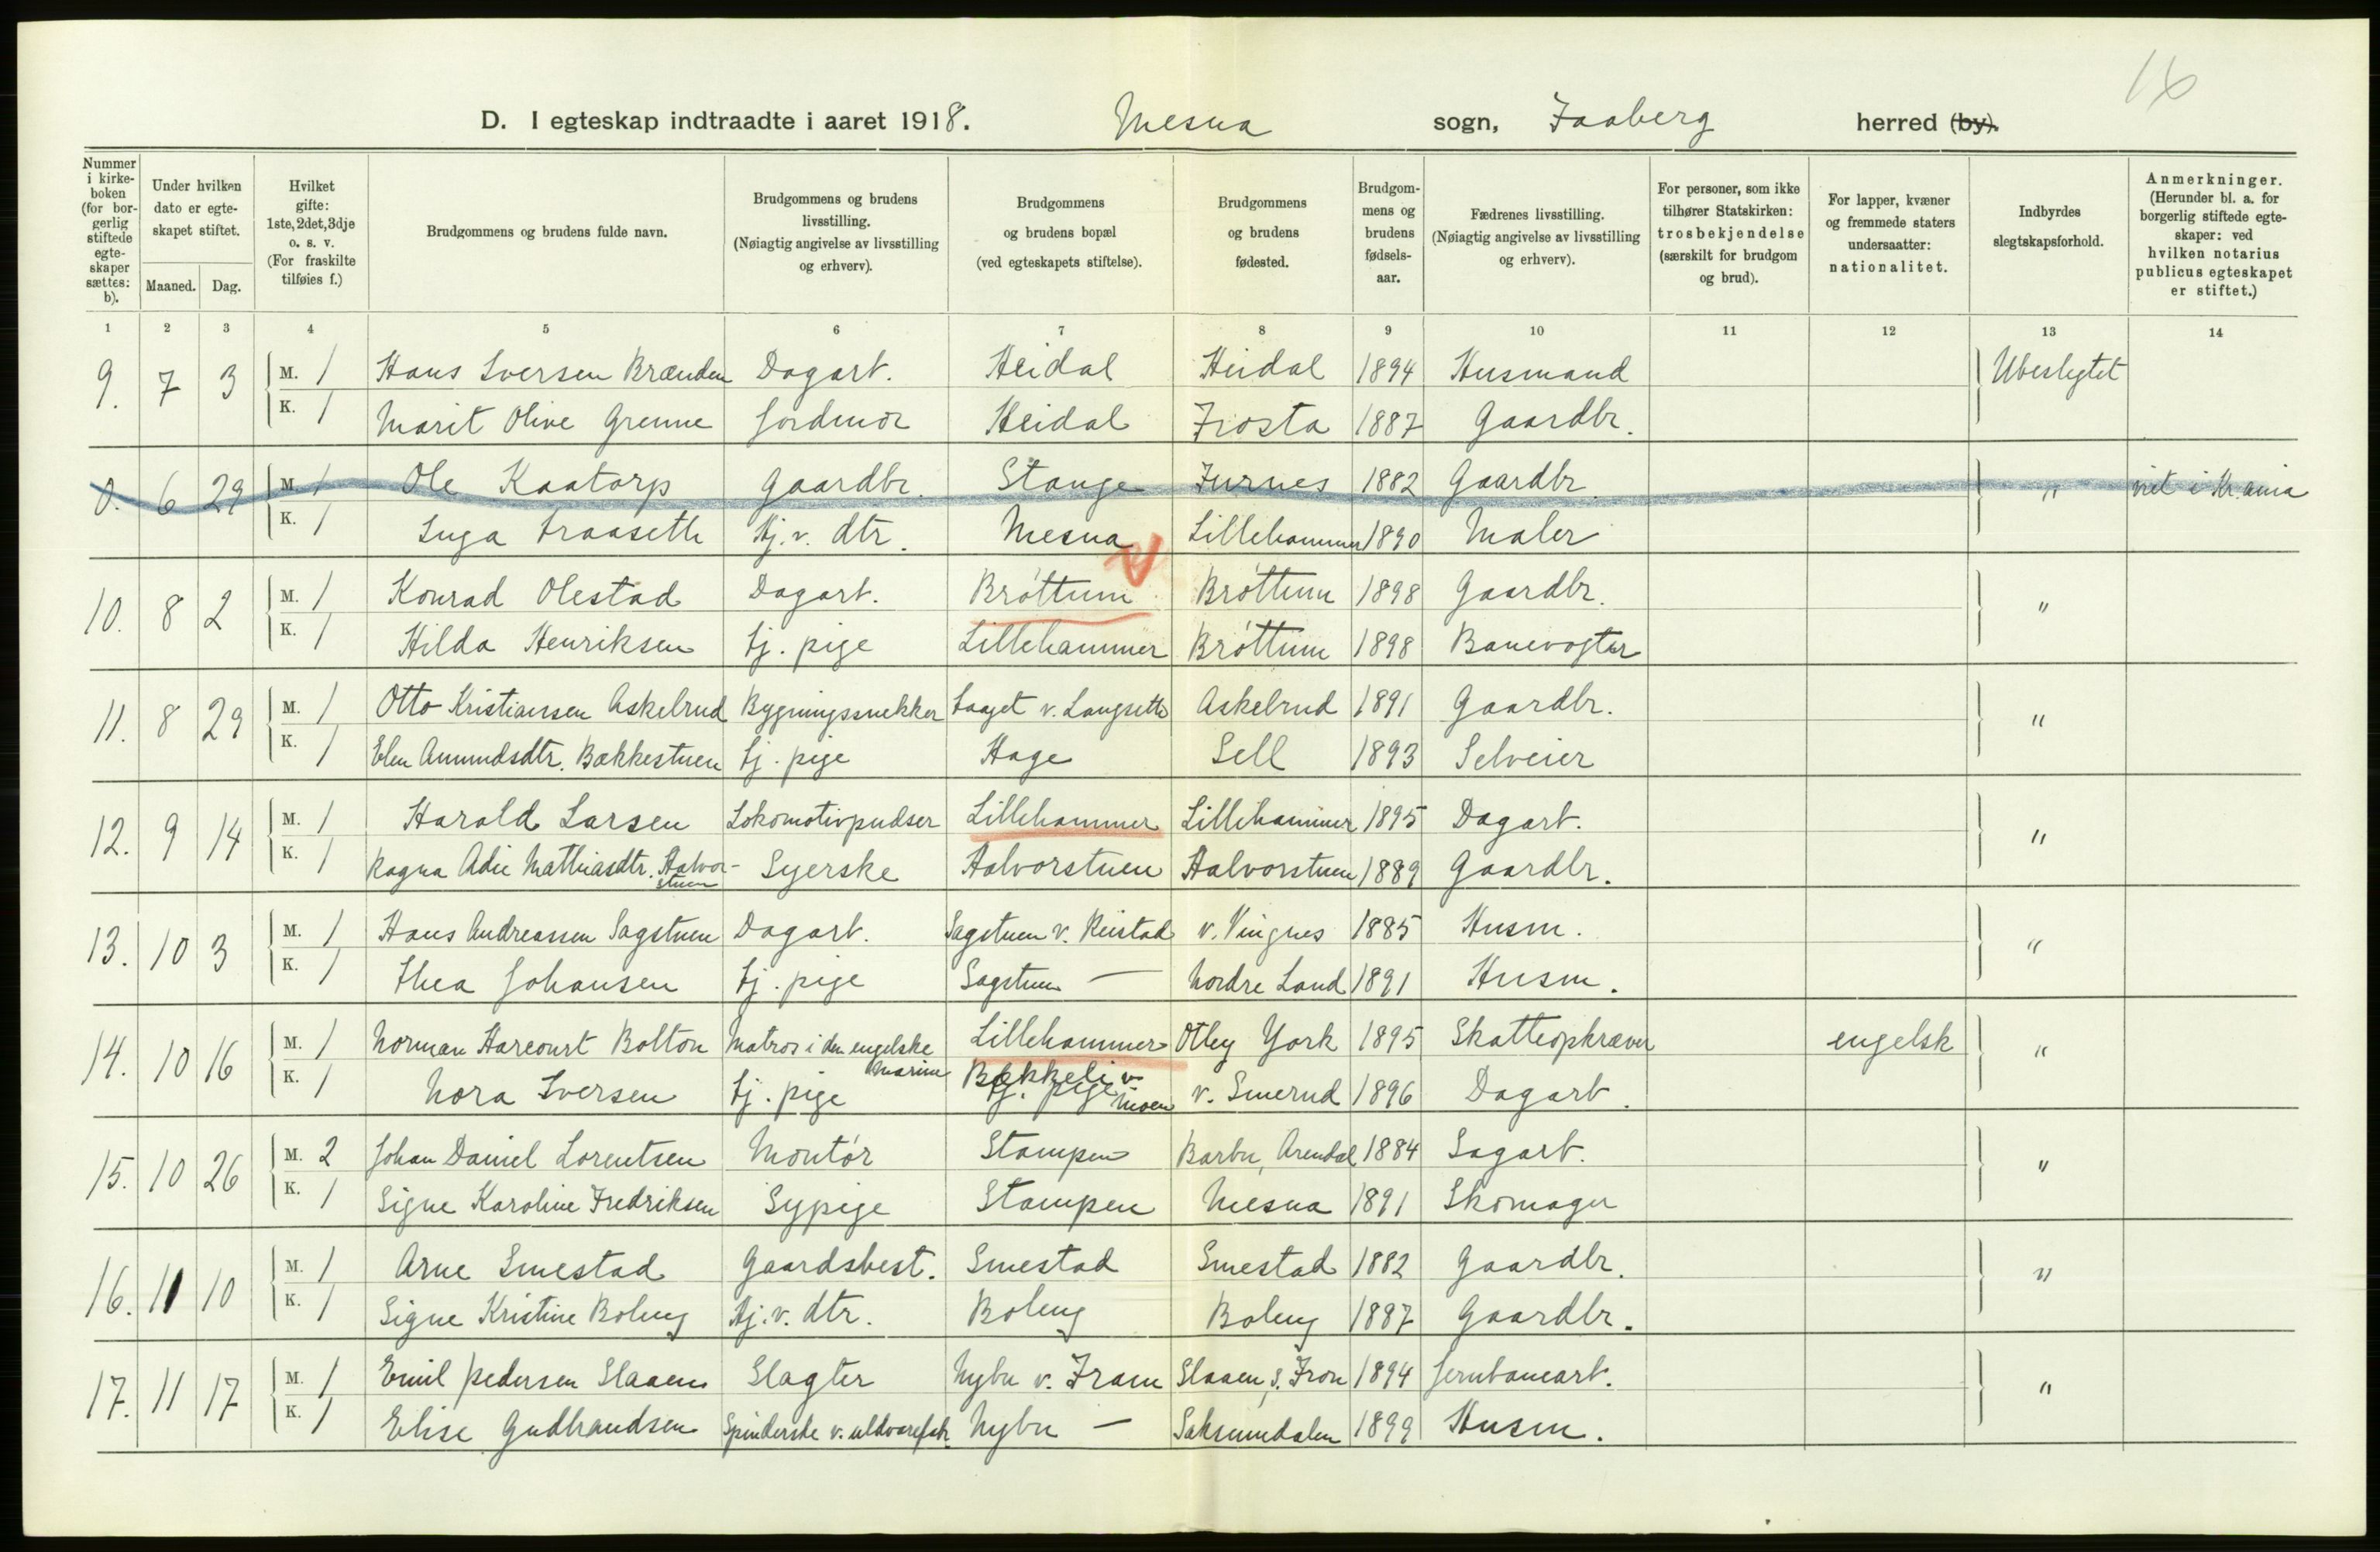 16
D. I egteskap indtraadte i aaret 1918. Mesna sogn, Faaberg herred (by).
Nummer i kirkeboken (for borgerlig stiftede egteskaper sættes: b).
Under hvilken dato er egteskapet stiftet.
Maaned. Dag.
Hvilket gifte: 1ste, 2det, 3dje o. s. v. (For fraskilte tilføies f.)
Brudgommens og brudens fulde navn.
Brudgommens og brudens livsstilling. (Nøiagtig angivelse av livsstilling og erhverv).
Brudgommens og brudens bopæl (ved egteskapets stiftelse).
Brudgommens og brudens fødested.
Brudgommens og brudens fødselsaar.
Fædrenes livsstilling. (Nøiagtig angivelse av livsstilling og erhverv).
For personer, som ikke tilhører Statskirken: trosbekjendelse (særskilt for brudgom og brud).
For lapper, kvæner og fremmede staters undersaatter: nationalitet.
Indbyrdes slegtskapsforhold.
Anmerkninger. (Herunder bl. a. for borgerlig stiftede egteskaper: ved hvilken notarius publicus egteskapet er stiftet.)
1 2 3 4 5 6 7 8 9 10 11 12 13 14
9. 7 3 M. 1 Hans Iversen Brænden Dagarb. Heidal Heidal 1894 Husmand Ubeslegtet
K. 1 Marit Olive Grenne Jordmor Heidal Frosta 1887 Gaardbr.
0. 6 29 M. 1 Ole Kaatorp Gaardbr. Stange Furnes 1882 Gaardbr. " viet i Kr.ania
K. 1 Inga Traaseth Hj. v. dtr. Mesna Lillehammer 1890 Maler
10. 8 2 M. 1 Konrad Olestad Dagarb. Brøttum Brøttum 1898 Gaardbr. "
K. 1 Hilda Henriksen Tj. pige Lillehammer Brøttum 1898 Banevogter
11. 8 29 M. 1 Otto Kristiansen Askelrud Bygningssnekker Laaget v. Langseth Askelrud 1891 Gaardbr. "
K. 1 Elen Amundsdtr. Bækkestuen Tj. pige Hage Sell 1893 Selveier
12. 9 14 M. 1 Harald Larsen Lokomotivpudser Lillehammer Lillehammer 1895 Dagarb. "
K. 1 Ragna Adie Mathiasdtr. Halvorstuen Syerske Halvorstuen Halvorstuen 1889 Gaardbr.
13. 10 3 M. 1 Hans Andreassen Sagstuen Dagarb. Sagstuen v. Reistad v. Vingnes 1885 Husm. "
K. 1 Thea Johansen Tj. pige Sagstuen — Nordre Land 1891 Husm.
14. 10 16 M. 1 Norman Harcourt Bolton Matros i den engelske marine Lillehammer Otley York 1895 Skatteopkræver engelsk "
K. 1 Nora Iversen Tj. pige Tj. pige Bækkeli v. Moen v. Smerud 1896 Dagarb.
15. 10 26 M. 2 Johan Daniel Lorentsen Montør Stampen Barbu, Arendal 1884 Sagarb. "
K. 1 Signe Karoline Fredriksen Sypige Stampen Mesna 1891 Skomager
16. 11 10 M. 1 Arne Smestad Gaardsbest. Smestad Smestad 1882 Gaardbr. "
K. 1 Signe Kristine Boleng Hj. v. dtr. Boleng Boleng 1887 Gaardbr.
17. 11 17 M. 1 Emil Pedersen Slaaen Slagter Nybu v. Fram Slaaen, S. Fron 1894 Jernbanearb. "
K. 1 Elise Gudbrandsen Spinderske v. uldvarefabr. Nybu — Saksumdalen 1899 Husm.